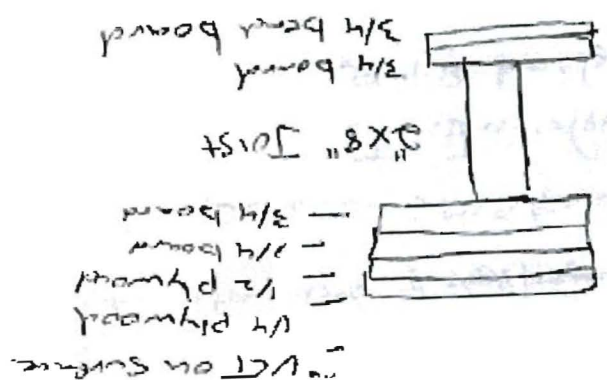 VCT on Surface
1/4 plywood
1/2 plywood
3/4 board
3/4 board
2x8" Joist
3/4 board
3/4 bead board